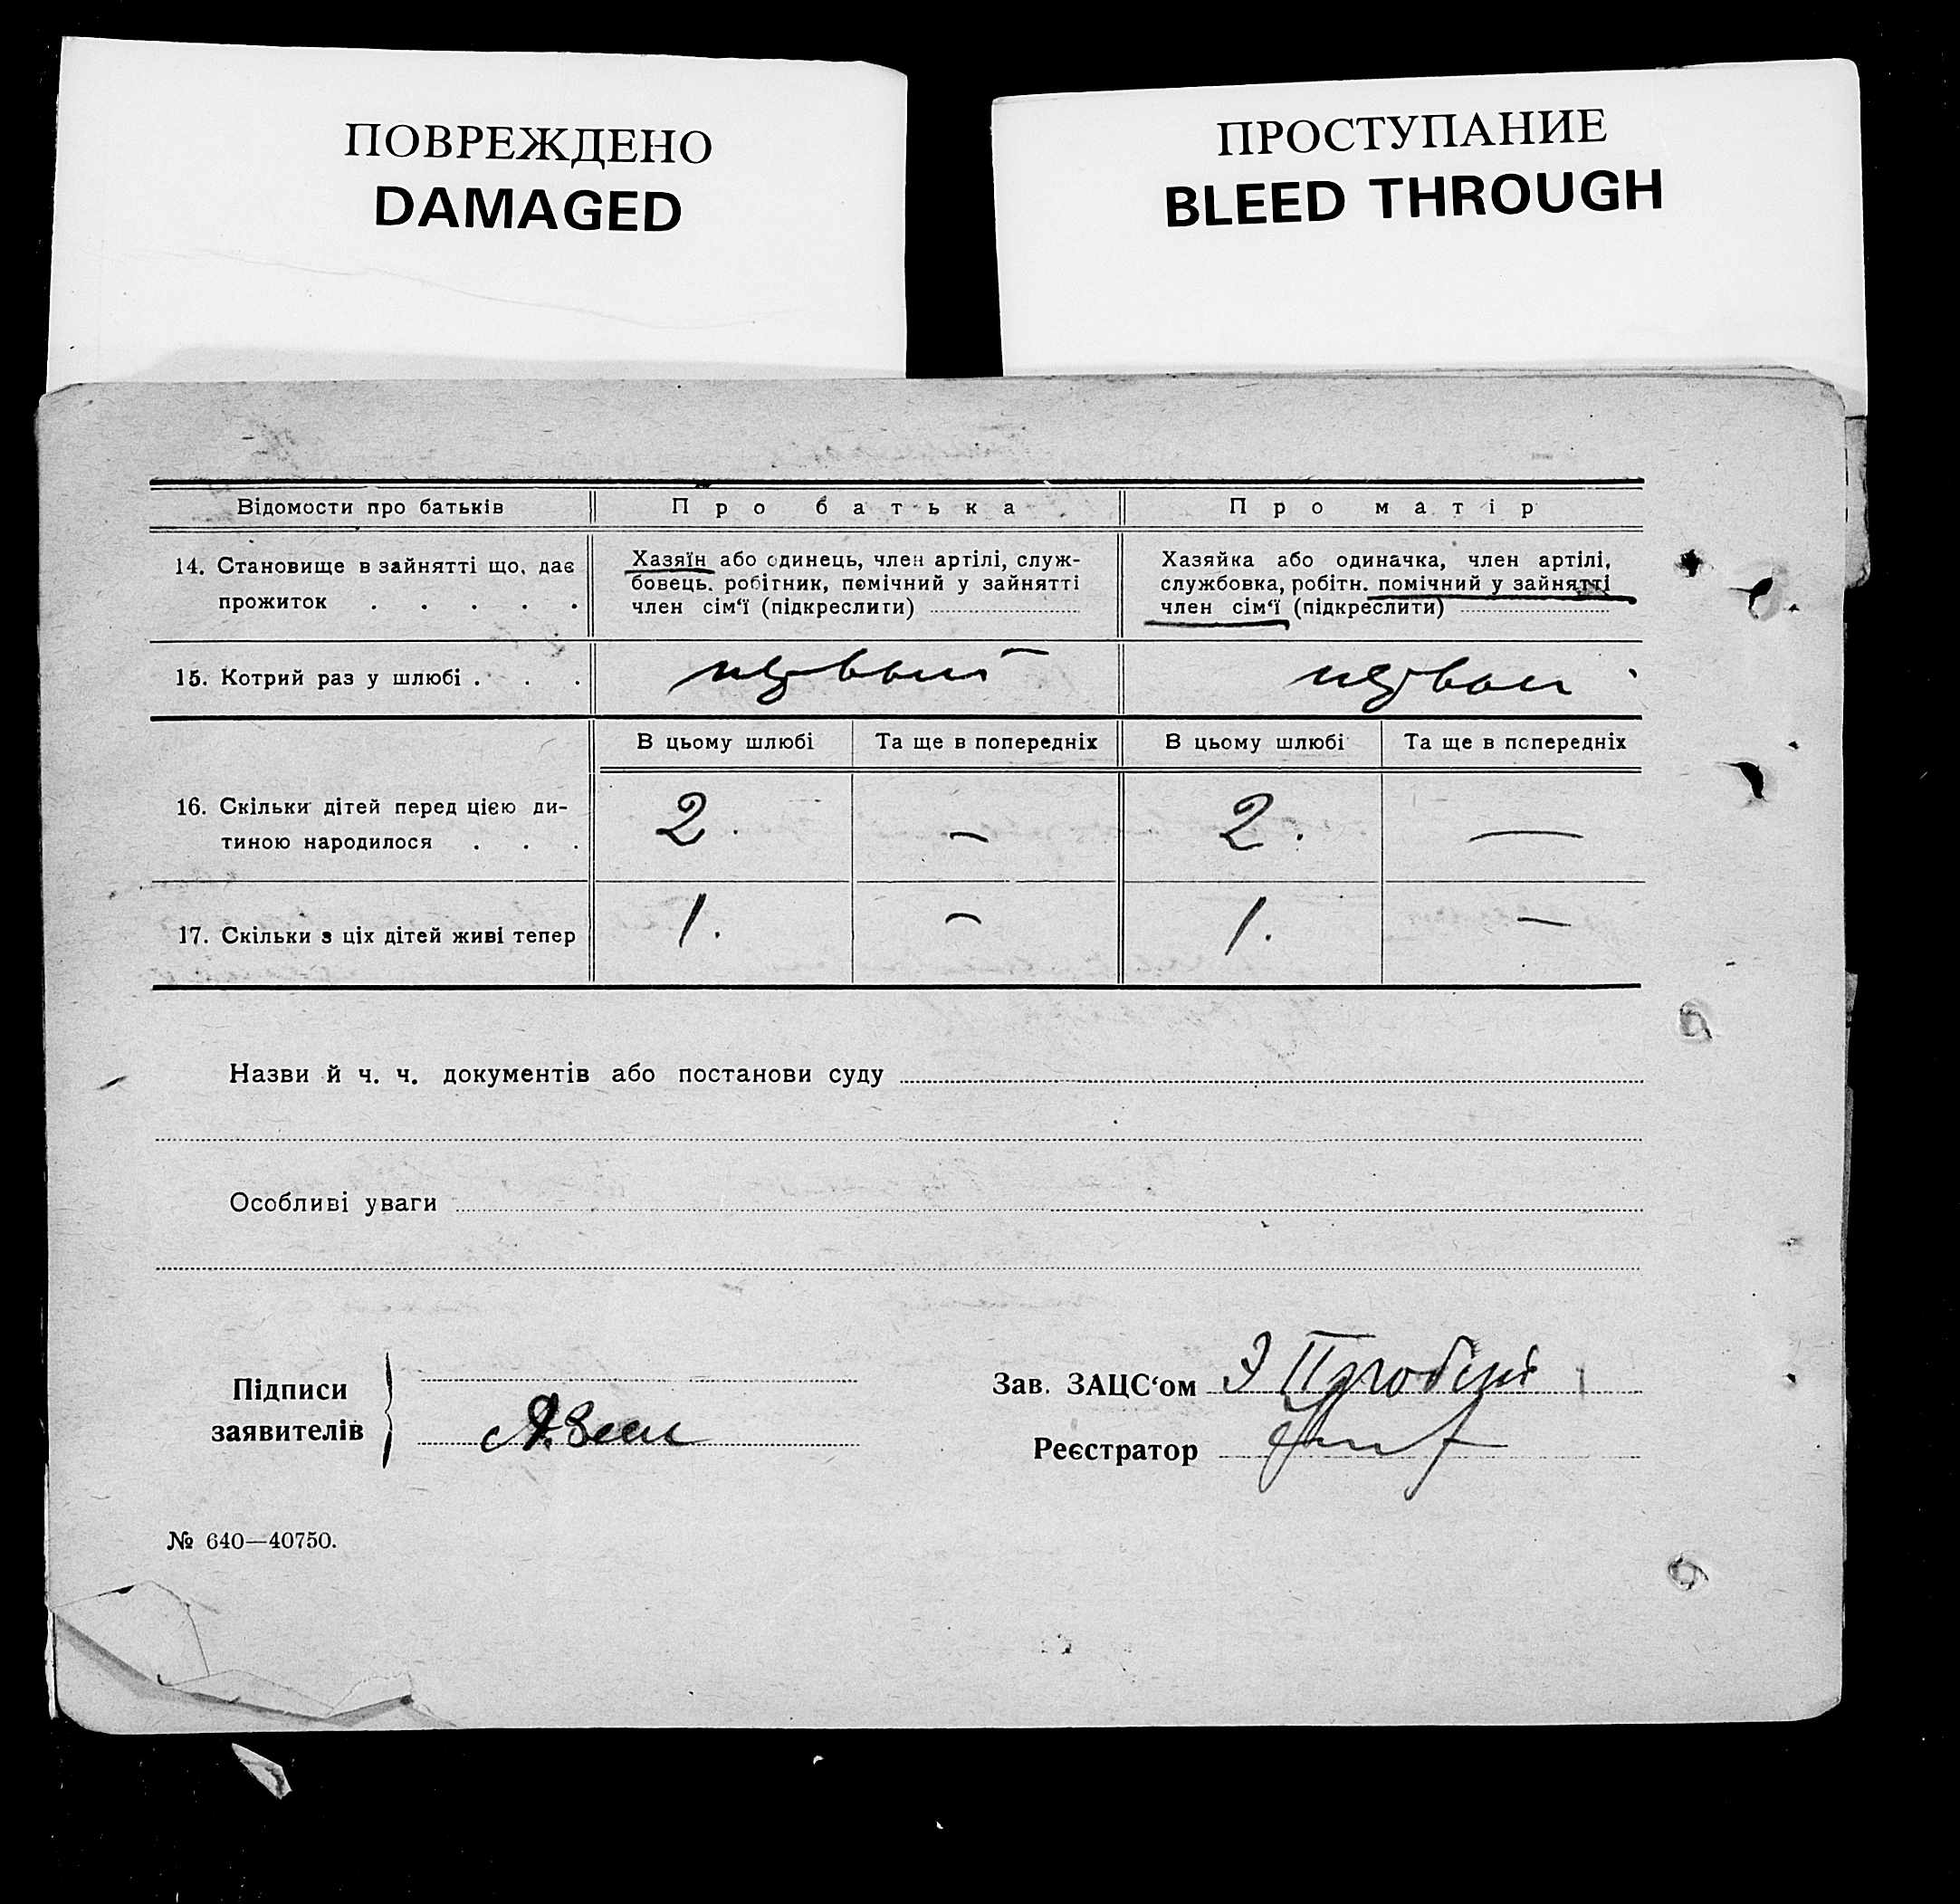 ПОВРЕЖДЕНО
DAMAGED
ПРОСТУПАНИЕ
BLEED THROUGH
Відомости про батьків Про батька Про матір
14. Становище в зайнятті що, дає прожиток . . . . .
Хазяїн або одинець, член артілі, служ-
бовець. робітник, помічний у зайнятті
член сім‘ї (підкреслити)
Хазяйка або одиначка, член артілі,
службовка, робітн. помічний у зайнятті
член сім‘ї (підкреслити)
15. Котрий раз у шлюбі . . . первый
В цьому шлюбі Та ще в попередніх В цьому шлюбі Та ще в попередніх
16. Скільки дітей перед цією ди-
тиною народилося . . . 2. — 2. —
17. Скільки з ціх дітей живі тепер 1. — 1. —
Назви й ч. ч. документів або постанови суду
Особливі уваги
Підписи
заявителів
Зав. ЗАЦС‘ом
Реєстратор
№ 640—40750.